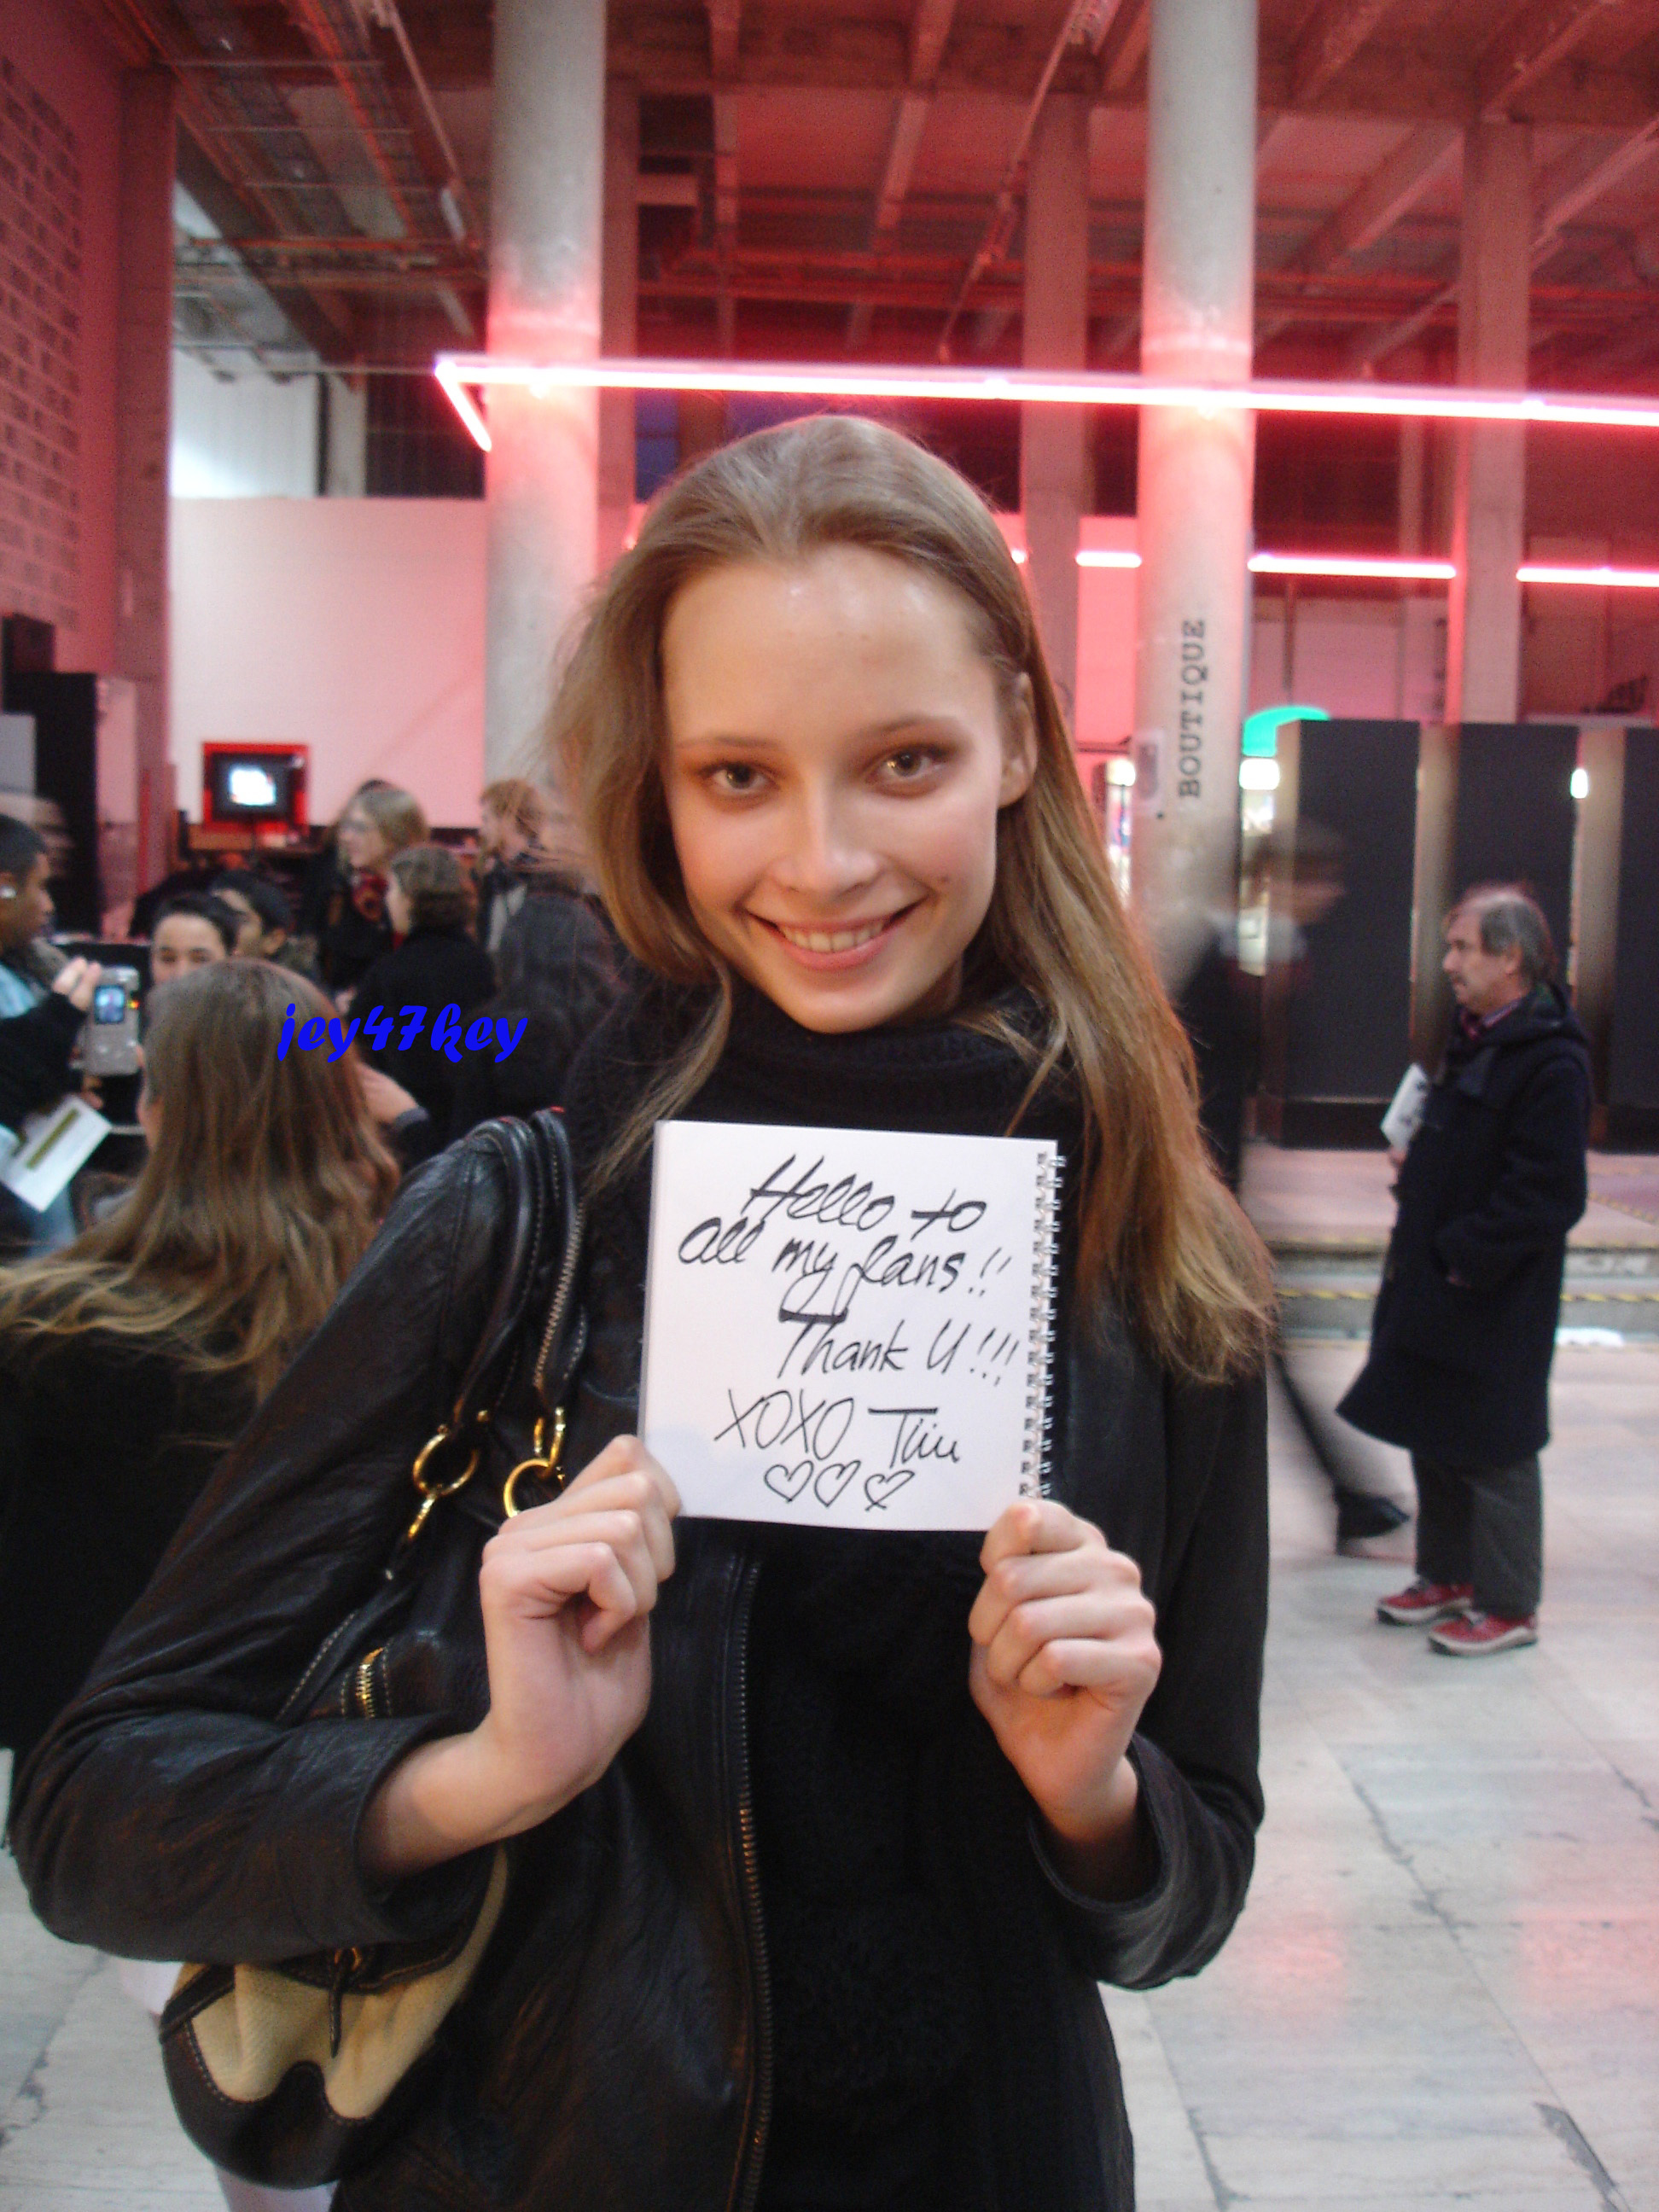 BOUTIQUE
jey47key
Hello to
all my fans!!
Thank U!!!
XOXO Tiiu